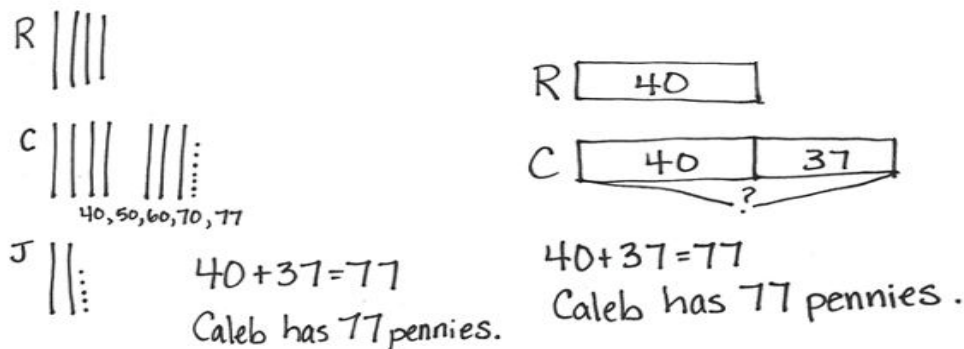 R
C
40, 50, 60, 70, 77
J
40+37=77
Caleb has 77 pennies.
R 40
C 40 37
?
40+37=77
Caleb has 77 pennies.